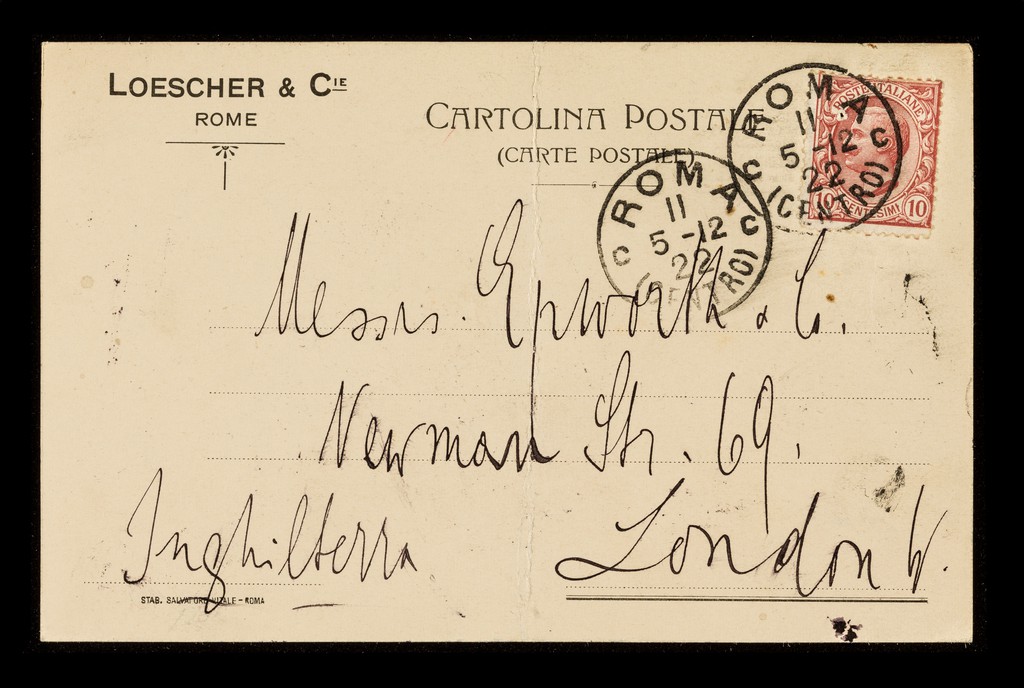 LOESCHER & CIE
ROME
CARTOLINA POSTALE
(CARTE POSTALE)
POSTE ITALIANE
10 CENTESIMI 10
ROMA
11
5-12
22
C C
(CENTRO)
ROMA
11
5-12
22
C C
(CENTRO)
Messrs. Epworth & Co.
Newman Str. 69.
Inghilterra
London W.
STAB. SALVATORE VITALE - ROMA